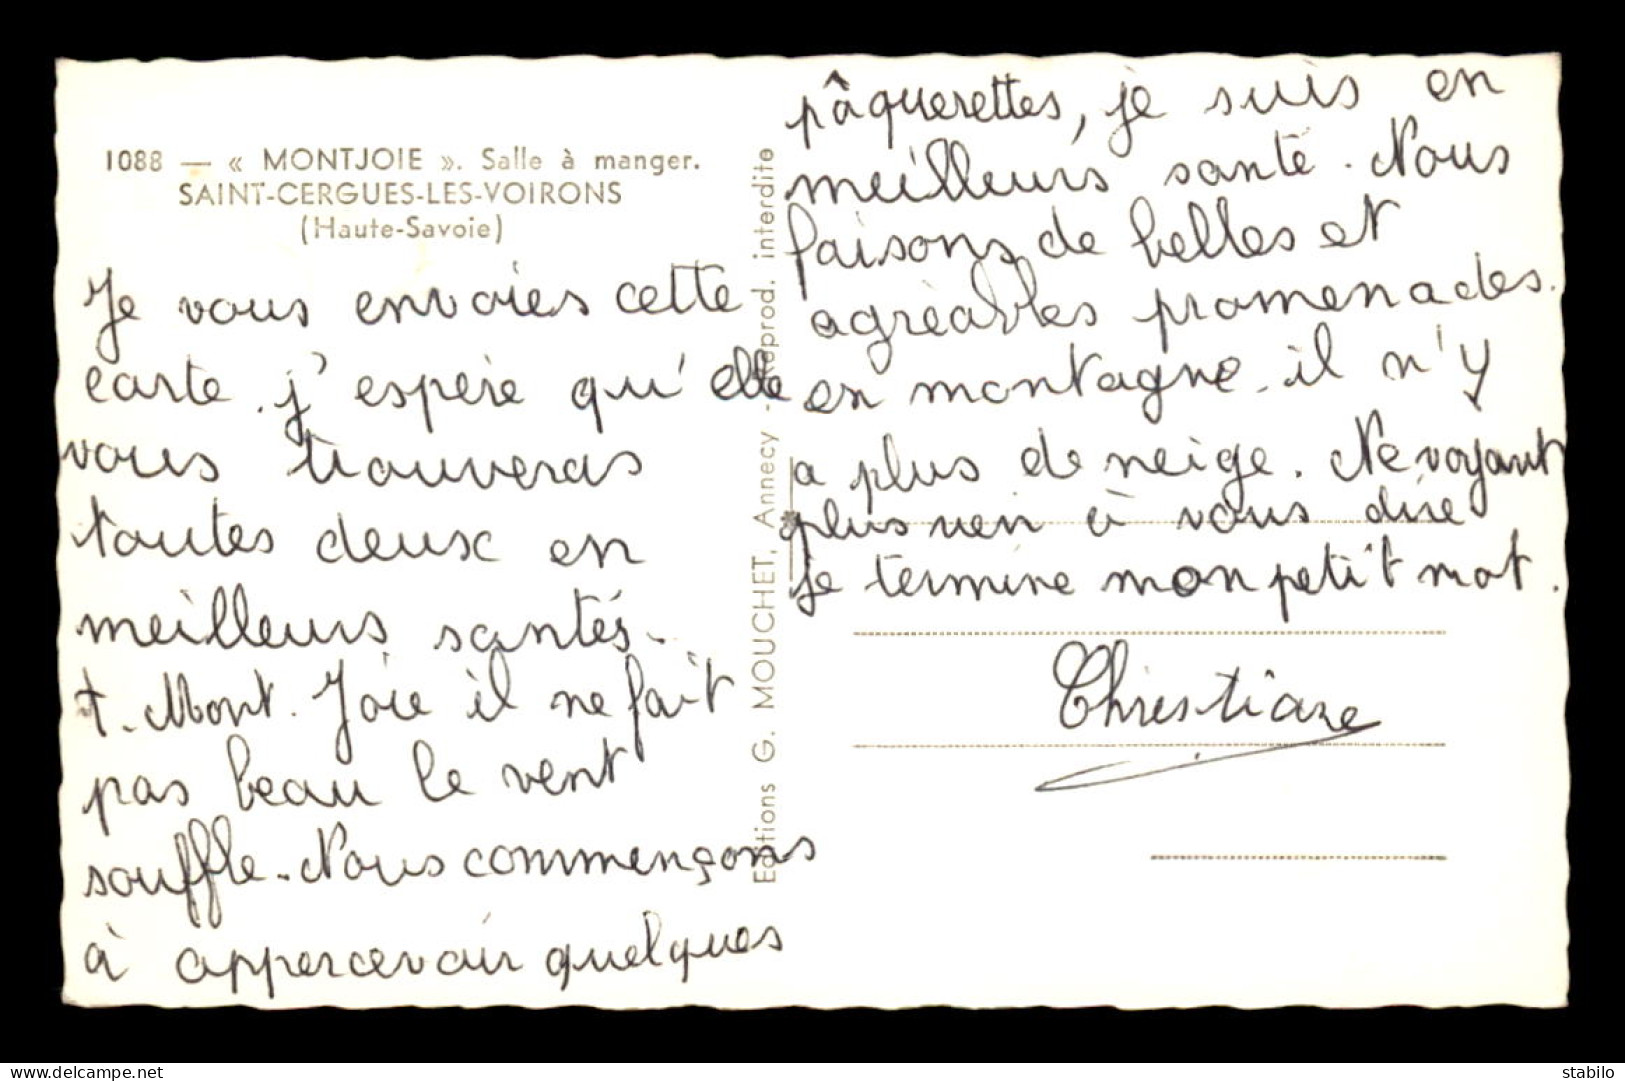 1088 — « MONTJOIE ». Salle à manger.
SAINT-CERGUES-LES-VOIRONS
(Haute-Savoie)
Je vous envoies cette
carte. j'espère qu'elle
vous trouveras
toutes deux en
meilleurs santés.
t. Mont. Joie il ne fait
pas beau le vent
souffle. Nous commençons
à appercevoir quelques
Editions G. MOUCHET, Annecy - Reprod. interdite
pâquerettes, je suis en
meilleurs santé. Nous
faisons de belles et
agréables promenades.
en montagne. il n'y
a plus de neige. Ne voyant
plus rien à vous dire
je termine mon petit mot.
Christiane
delcampe.net
stabilo